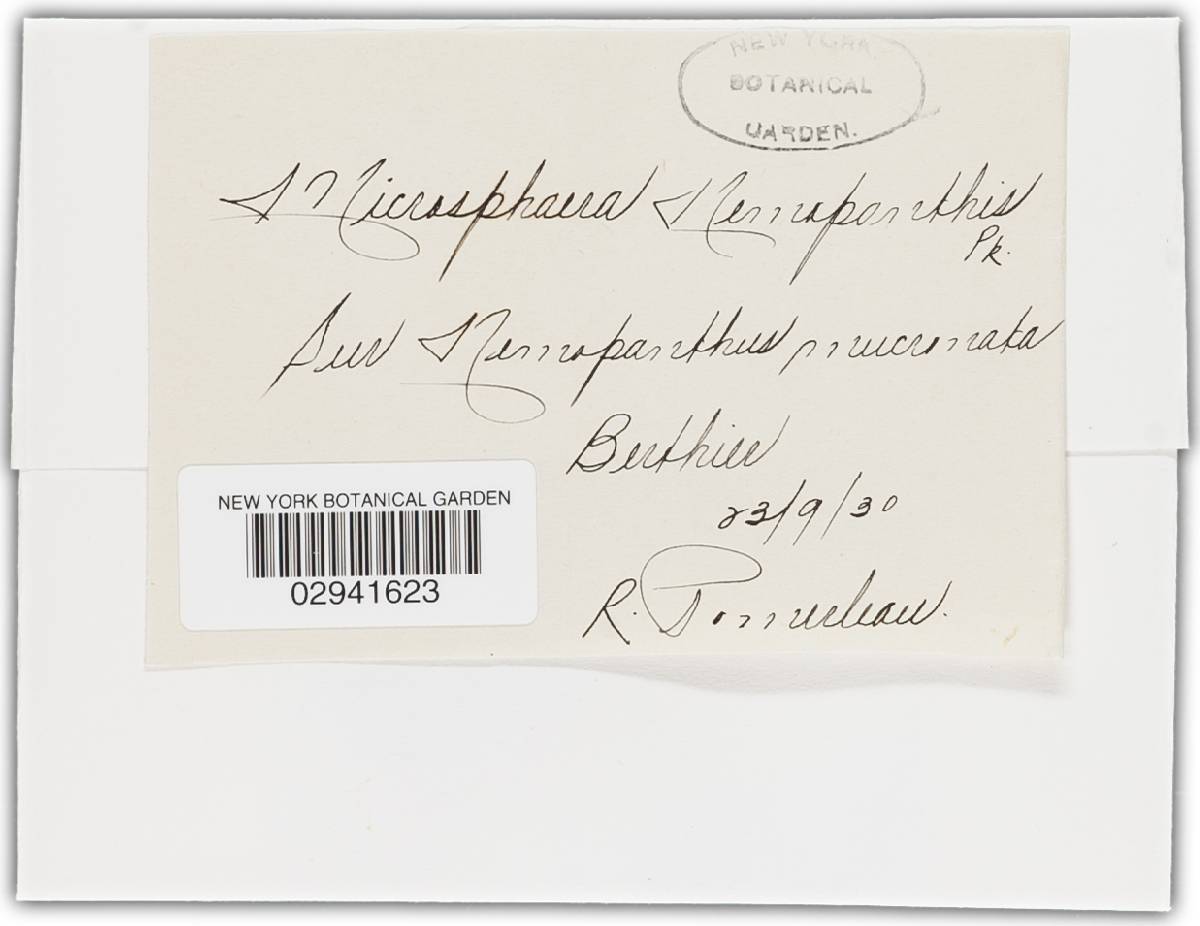 NEW YORK
BOTANICAL
GARDEN.
Microsphaera Nemopanthis
Pk.
Sur Nemopanthus mucronata
Berthier
23/9/30
R. Pomerleau.
NEW YORK BOTANICAL GARDEN
02941623